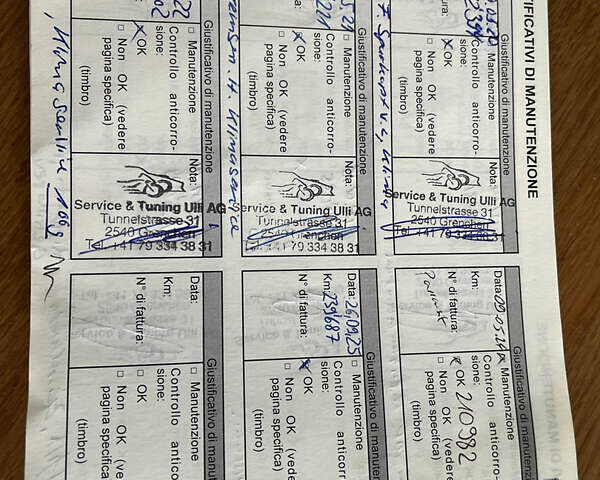 CERTIFICATIVI DI MANUTENZIONE
Giustificativo di manutenzione
Manutenzione
Controllo anticorro-
sione:
OK
Non OK (vedere
pagina specifica)
(timbro)
Nota:
Service & Tuning Ulli AG
Tunnelstrasse 31
2540 Grenchen
Tel. +41 79 334 38 31
Giustificativo di manutenzione
Data: 09.05.24
Manutenzione
Km:
Controllo anticorro-
sione:
N° di fattura:
OK 210982
Non OK (vedere
pagina specifica)
(timbro)
Giustificativo di manutenzione
Manutenzione
Controllo anticorro-
sione:
OK
Non OK (vedere
pagina specifica)
(timbro)
Nota:
Service & Tuning Ulli AG
Tunnelstrasse 31
2540 Grenchen
Tel. +41 79 334 38 31
Giustificativo di manutenzione
Data: 26.09.25
Manutenzione
Km: 239687
Controllo anticorro-
sione:
N° di fattura:
OK
Non OK (vedere
pagina specifica)
(timbro)
Giustificativo di manutenzione
Manutenzione
Controllo anticorro-
sione:
OK
Non OK (vedere
pagina specifica)
(timbro)
Nota:
Service & Tuning Ulli AG
Tunnelstrasse 31
2540 Grenchen
Tel. +41 79 334 38 31
Giustificativo di manutenzione
Data:
Manutenzione
Km:
Controllo anticorro-
sione:
N° di fattura:
OK
Non OK (vedere
pagina specifica)
(timbro)